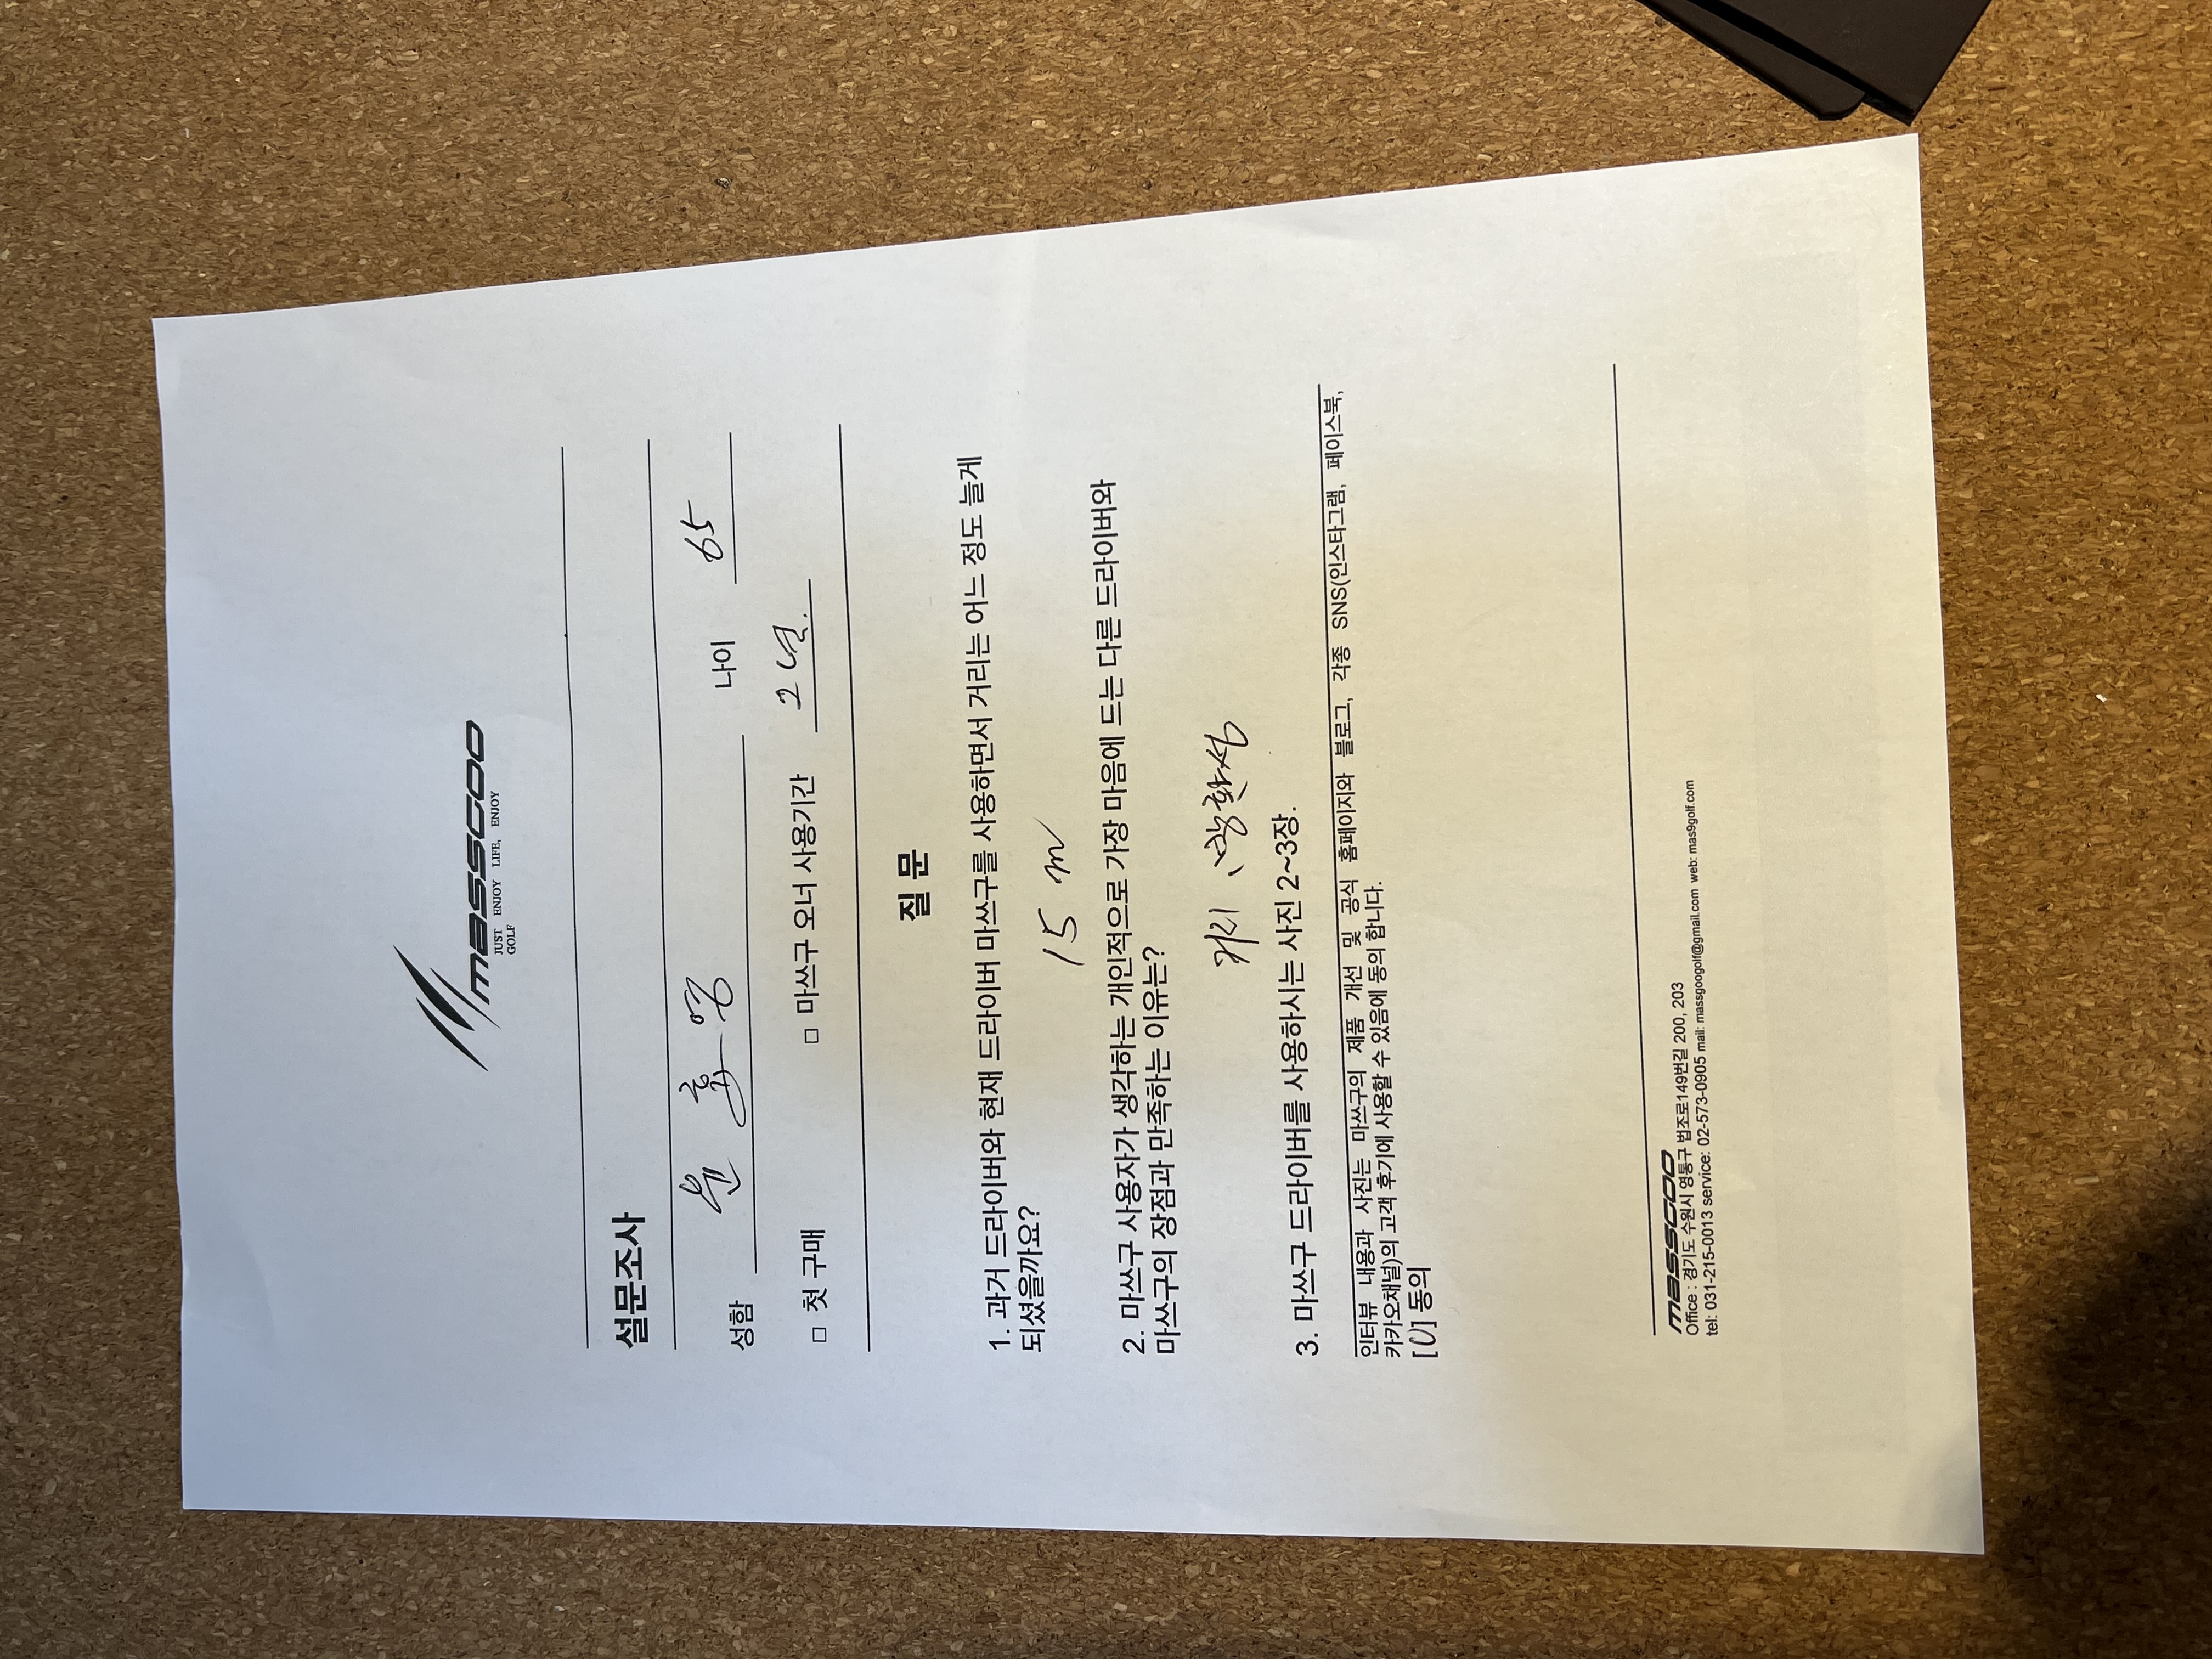 massgoo
JUST ENJOY LIFE, ENJOY
GOLF
설문조사
성함 윤 효 영 나이 65
□ 첫 구매 □ 마쓰구 오너 사용기간 2년.
질 문
1. 과거 드라이버와 현재 드라이버 마쓰구를 사용하면서 거리는 어느 정도 늘게
되셨을까요?
15 m
2. 마쓰구 사용자가 생각하는 개인적으로 가장 마음에 드는 다른 드라이버와
마쓰구의 장점과 만족하는 이유는?
거리, 방향성
3. 마쓰구 드라이버를 사용하시는 사진 2~3장.
인터뷰 내용과 사진는 마쓰구의 제품 개선 및 공식 홈페이지와 블로그, 각종 SNS(인스타그램, 페이스북,
카카오채널)의 고객 후기에 사용할 수 있음에 동의 합니다.
[O] 동의
massgoo
Office : 경기도 수원시 영통구 법조로149번길 200, 203
tel: 031-215-0013 service: 02-573-0905 mail: massgoogolf@gmail.com web: mas9golf.com